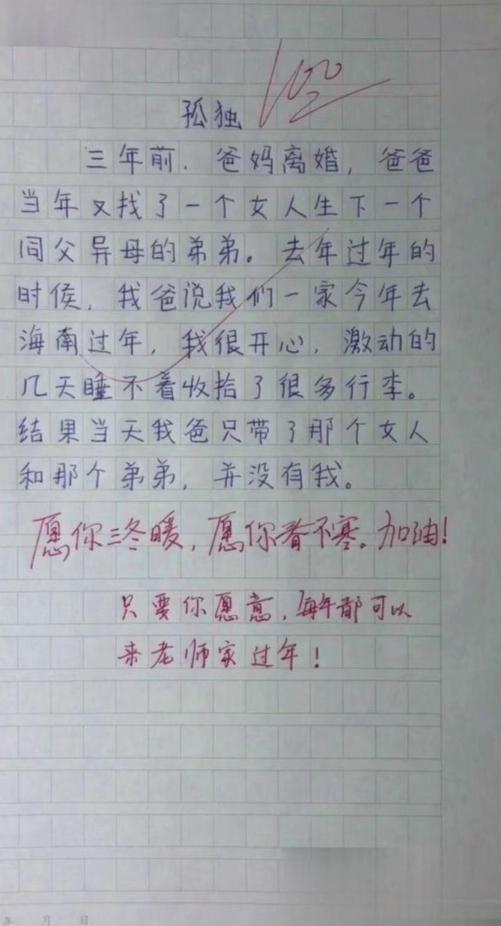 孤独
100
三年前. 爸妈离婚, 爸爸
当年又找了一个女人生下一个
同父异母的弟弟。去年过年的
时侯, 我爸说我们一家今年去
海南过年, 我很开心, 激动的
几天睡不着收拾了很多行李。
结果当天我爸只带了那个女人
和那个弟弟, 并没有我。
愿你三冬暖, 愿你春不寒。加油!
只要你愿意, 每年都可以
来老师家过年!
年 月 日